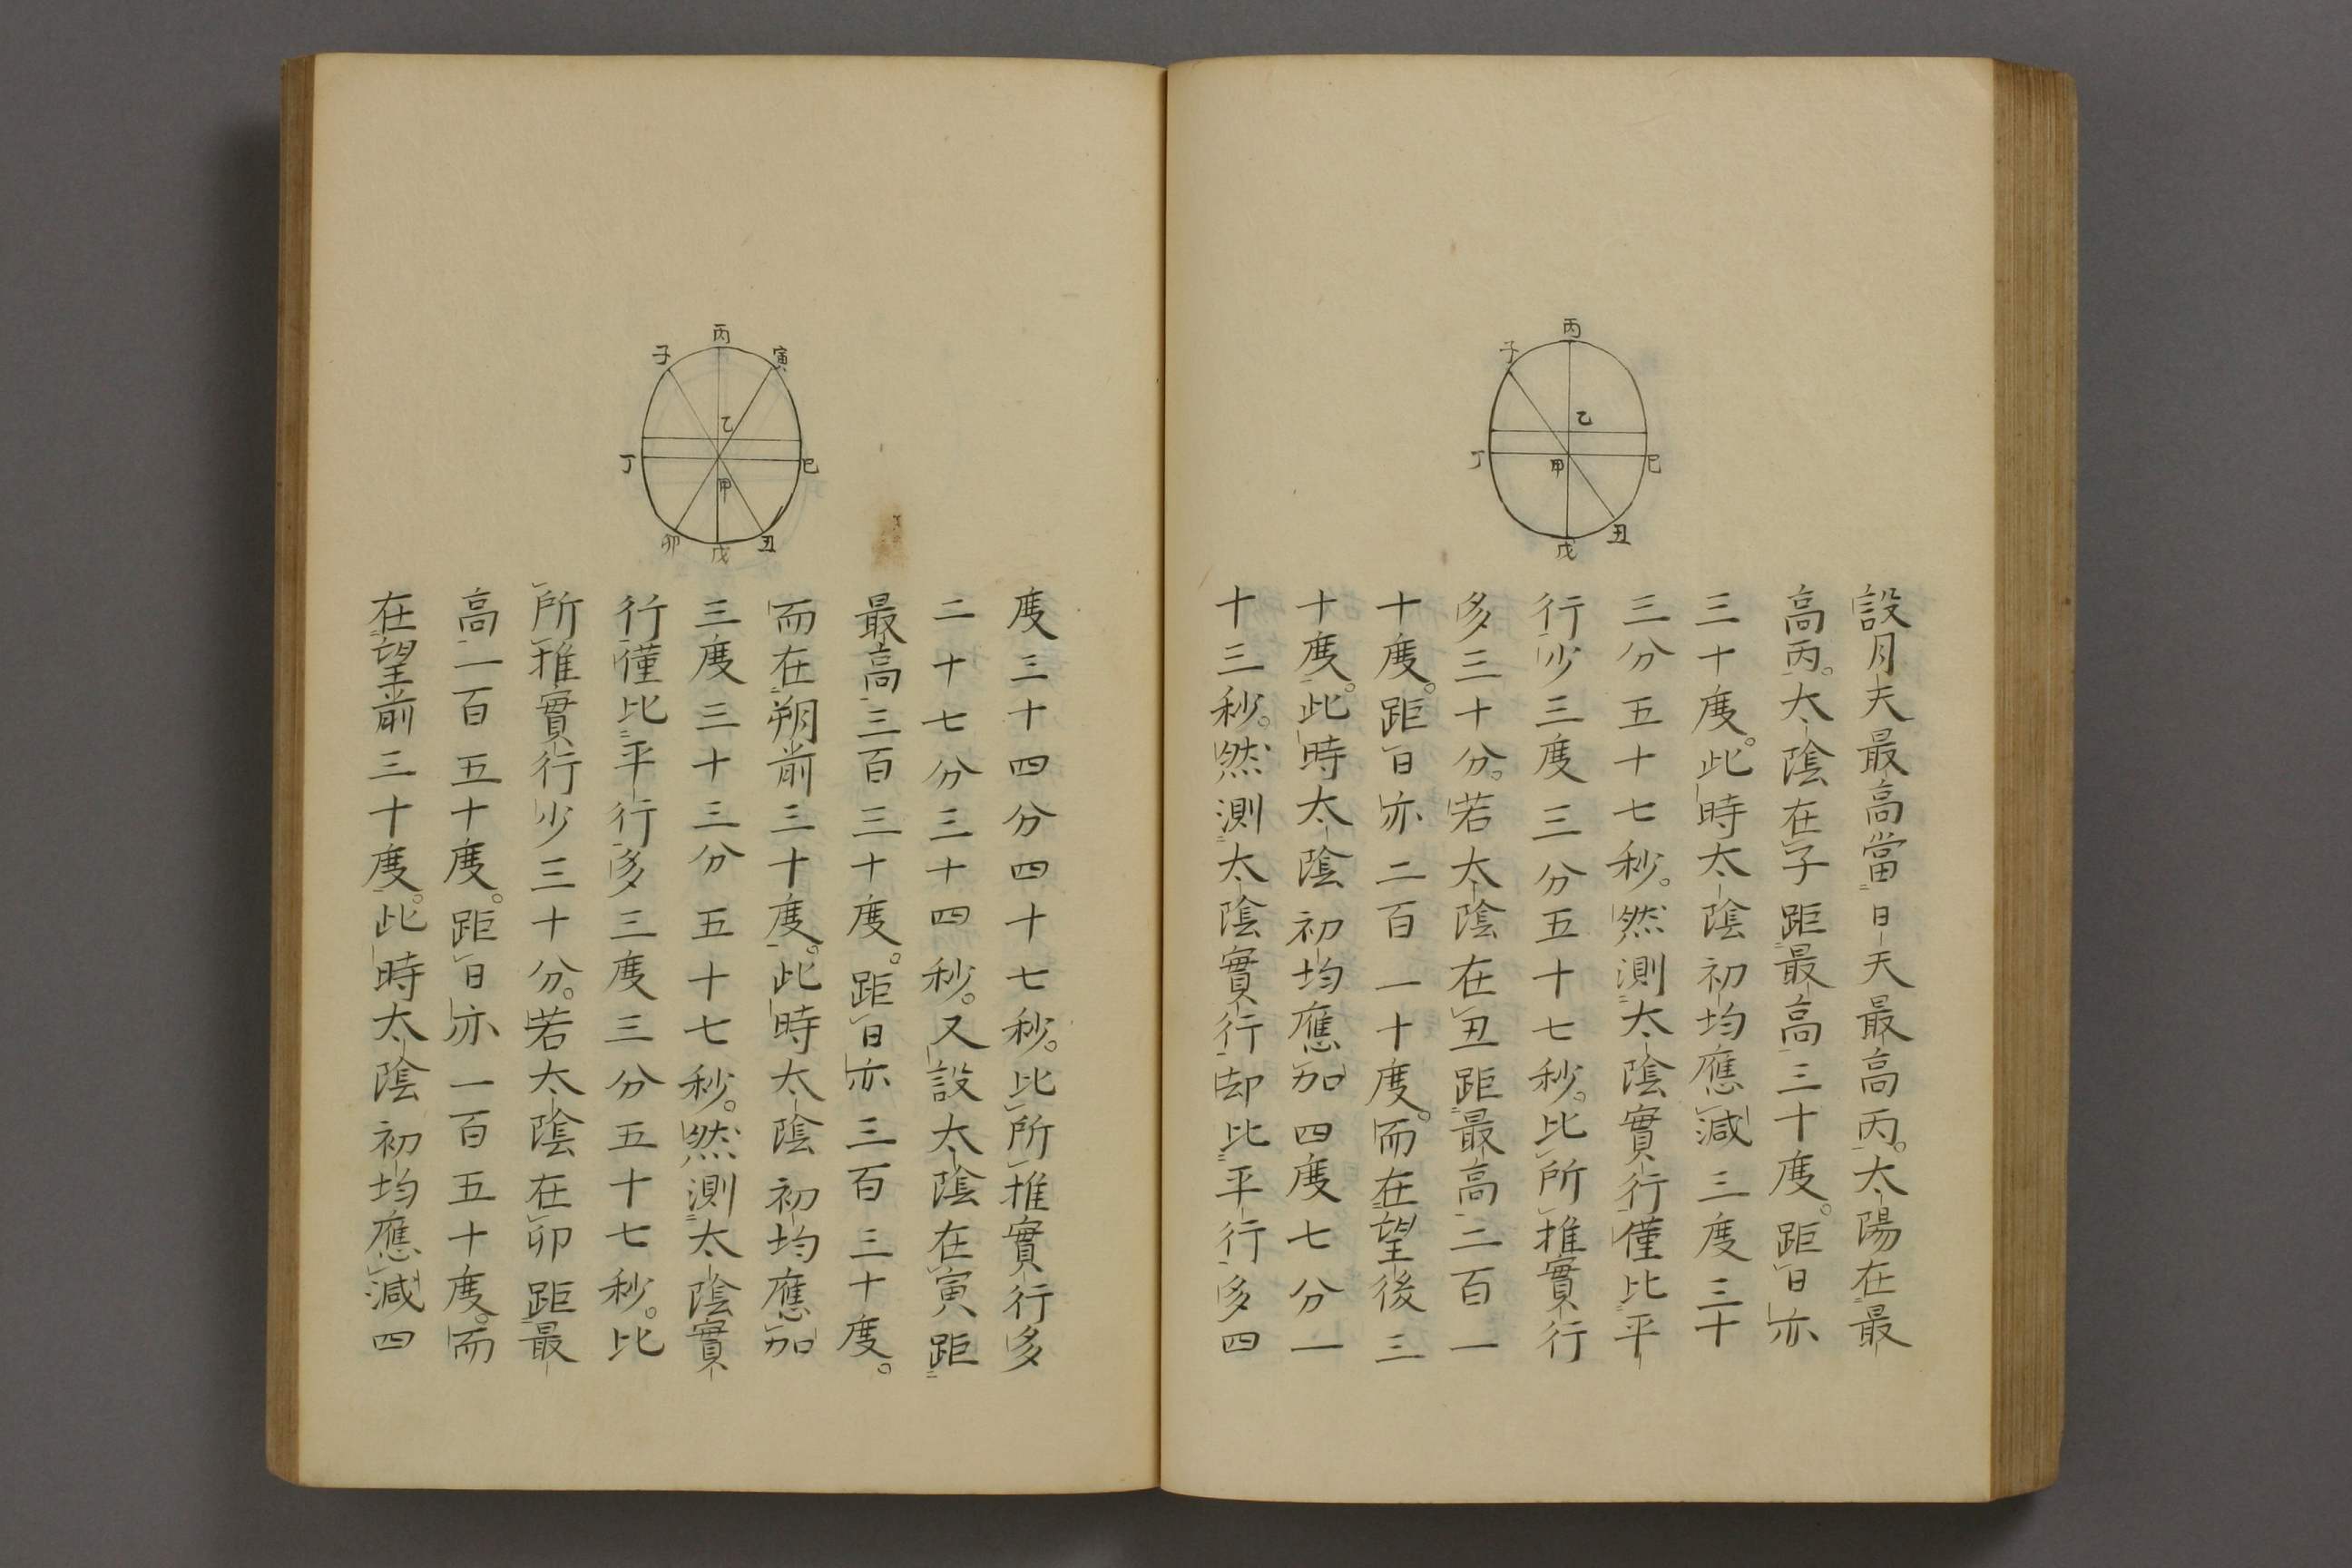 丙
子
乙
丁
甲
巳
丑
戊
設月夫最高當日天最高丙。太陽在最
高丙。太陰在子距最高三十度。距日亦
三十度。此時太陰初均應減三度三十
三分五十七秒。然測太陰實行僅比平
行少三度三分五十七秒。比所推實行
多三十分。若太陰在丑距最高二百一
十度。距日亦二百一十度。而在望後三
十度。此時太陰初均應加四度七分一
十三秒。然測太陰實行却比平行多四
丙
子
寅
乙
丁
巳
甲
卯
戊
丑
度三十四分四十七秒。比所推實行多
二十七分三十四秒。又設太陰在寅距
最高三百三十度。距日亦三百三十度。
而在朔前三十度。此時太陰初均應加
三度三十三分五十七秒。然測太陰實
行僅比平行多三度三分五十七秒。比
所推實行少三十分。若太陰在卯距最
高一百五十度。距日亦一百五十度。而
在望前三十度。此時太陰初均應減四